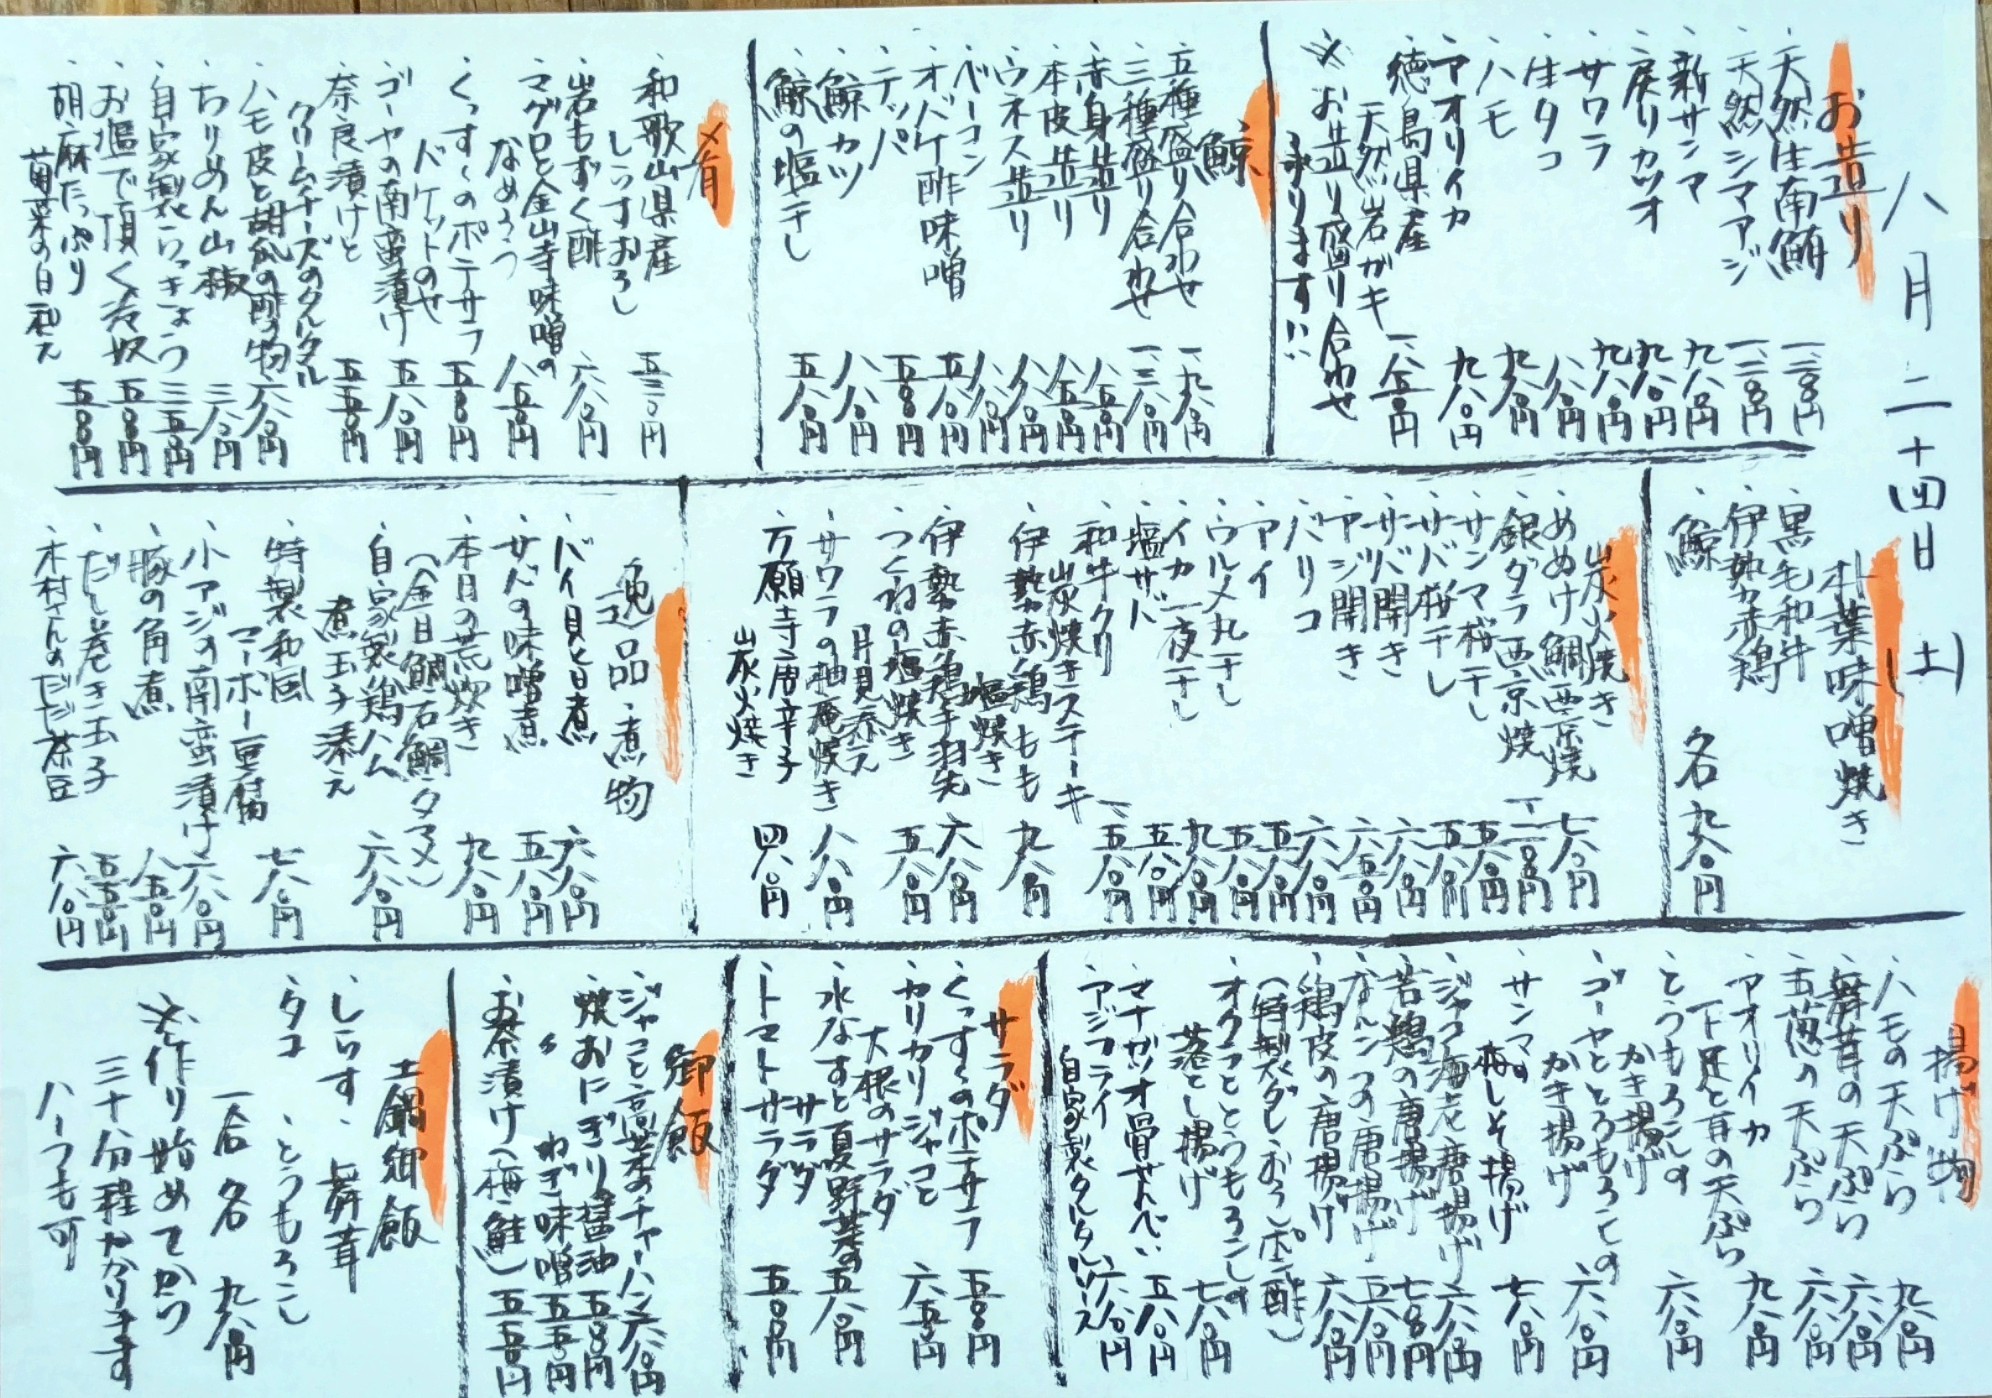 八月二十四日(土)
お造り
・天然生南鮪 一二〇〇円
・天然シマアジ 一二〇〇円
・新サンマ 九八〇円
・戻りカツオ 九八〇円
・サワラ 九八〇円
・生タコ 八八〇円
・ハモ 九八〇円
・アオリイカ 九八〇円
・徳島県産
天然岩ガキ 一、八五〇円
※お造り盛り合わせ
承ります!!
鯨
・五種盛り合わせ 一、九八〇円
・三種盛り合わせ 一、三八〇円
・赤身造り 八五〇円
・本皮造り 八五〇円
・ウネス造り 八八〇円
・ベーコン 八八〇円
・オバケ酢味噌 五八〇円
・テッパ 五八〇円
・鯨カツ 八八〇円
・鯨の塩干し 五八〇円
肴
・和歌山県産
しらすおろし 五三〇円
・岩もずく酢 六八〇円
・マグロと金山寺味噌の
なめろう 八五〇円
・くっすーのポテサラ
バケットのせ 五八〇円
・ゴーヤの南蛮漬け 五八〇円
・奈良漬けと
クリームチーズのタルタル 五五〇円
・ハモ皮と胡瓜の酢の物 六八〇円
・ちりめん山椒 三八〇円
・自家製らっきょう 三五〇円
・お塩で頂く冷奴 五〇〇円
・胡麻たっぷり
菊菜の白和え 五五〇円
朴葉味噌焼き
・黒毛和牛
・伊勢赤鶏
・鯨 各九八〇円
炭火焼き
・めぬけ鯛西京焼 七八〇円
・銀ダラ西京焼 一二〇〇円
・サンマ桜干し 五八〇円
・サバ桜干し 五八〇円
・サバ開き 六八〇円
・アジ開き 六五〇円
・バリコ 六八〇円
・アイ 五八〇円
・ウルメ丸干し 五八〇円
・イカ一夜干し 九八〇円
・塩サバ 五八〇円
・和牛クリ
炭焼きステーキ 一、五八〇円
・伊勢赤鶏もも
塩焼き 九八〇円
・伊勢赤鶏手羽先 六八〇円
・つくねの塩焼き 五八〇円
月見添え
・サワラの柚庵焼き 八八〇円
・万願寺唐辛子
炭火焼き 四八〇円
逸品・煮物
・バイ貝旨煮 六八〇円
・サバの味噌煮 五八〇円
・本日の荒炊き 九八〇円
(金目鯛、石鯛、タマメ)
・自家製鶏ハム
煮玉子添え 六八〇円
・特製和風
マーボー豆腐 七八〇円
・小アジの南蛮漬け 六八〇円
・豚の角煮 八五〇円
・だし巻き玉子 五五〇円
・木村さんのだだ茶豆 六八〇円
揚げ物
・ハモの天ぷら 九八〇円
・舞茸の天ぷら 六八〇円
・玉葱の天ぷら 六五〇円
・アオリイカ
下足と耳の天ぷら 九八〇円
・とうもろこしの
かき揚げ 六八〇円
・ゴーヤととうもろこしの
かき揚げ 六八〇円
・サンマの
梅しそ揚げ 七八〇円
・ジャコ海老唐揚げ 六八〇円
・若鶏の唐揚げ 七八〇円
・なんこつの唐揚げ 五八〇円
・鶏皮の唐揚げ 六八〇円
(特製ダレ、おろしポン酢)
・オクラととうもろこしの
落とし揚げ 七八〇円
・マナガツオ骨せんべい 五八〇円
・アジフライ
自家製タルタルソース 六八〇円
サラダ
・くっすーのポテサラ 五〇〇円
・カリカリジャコと
大根のサラダ 六五〇円
・水なすと夏野菜の
サラダ 五八〇円
・トマトサラダ 五〇〇円
御飯
・ジャコと高菜のチャーハン 六八〇円
・焼おにぎり醤油 五〇〇円
・〃 ねぎ味噌 五五〇円
・お茶漬け(梅、鮭) 五五〇円
土鍋御飯
・しらす ・舞茸
・タコ ・とうもろこし
一合各九八〇円
※作り始めてから
三十分程かかります
ハーフも可